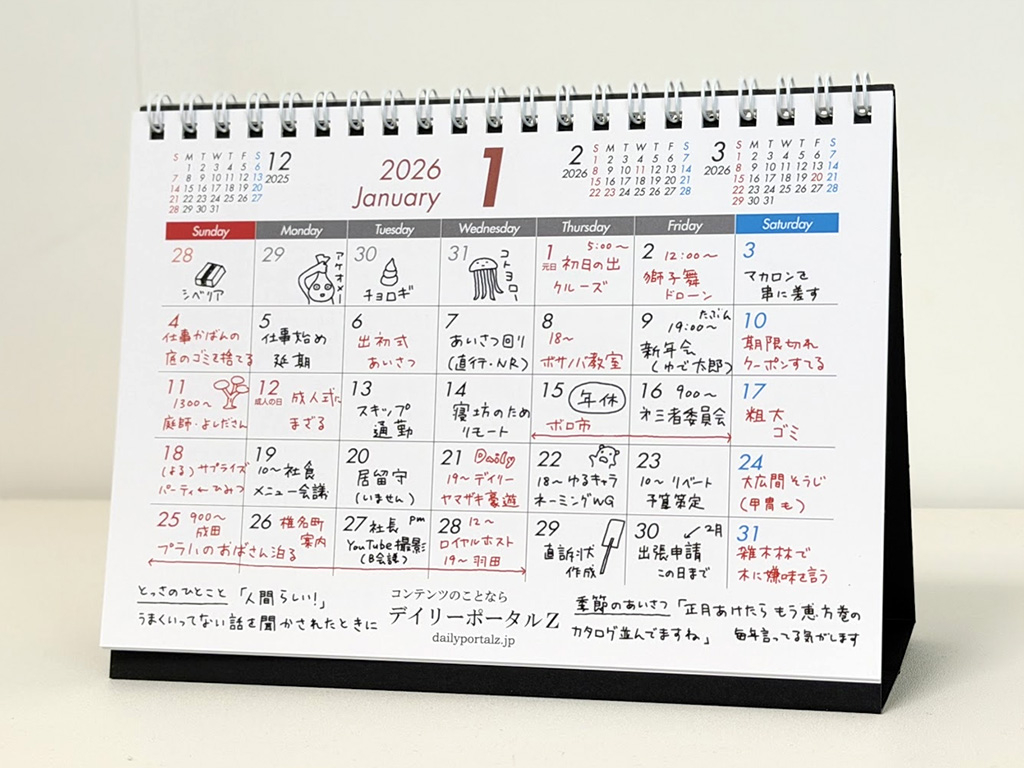 S M T W T F S
1 2 3 4 5 6
7 8 9 10 11 12 13
14 15 16 17 18 19 20
21 22 23 24 25 26 27
28 29 30 31
12
2025
2026
January
1
2
2026
S M T W T F S
1 2 3 4 5 6 7
8 9 10 11 12 13 14
15 16 17 18 19 20 21
22 23 24 25 26 27 28
3
2026
S M T W T F S
1 2 3 4 5 6 7
8 9 10 11 12 13 14
15 16 17 18 19 20 21
22 23 24 25 26 27 28
29 30 31
Sunday Monday Tuesday Wednesday Thursday Friday Saturday
28
シベリア
29
アケオメー
30
チョロギ
31
コトヨロー
1 5:00〜
元日 初日の出
クルーズ
2 12:00〜
獅子舞
ドローン
3
マカロンを
串に差す
4
仕事かばんの
底のゴミを捨てる
5
仕事始め
延期
6
出初式
あいさつ
7
あいさつ回り
(直行・NR)
8
18〜
ボサノバ教室
9 たぶん
19:00〜
新年会
(ゆで太郎)
10
期限切れ
クーポンすてる
11
1300〜
庭師・よしださん
12
成人の日 成人式に
まざる
13
スキップ
通勤
14
寝坊のため
リモート
15 年休
ボロ市
16 900〜
第三者委員会
17
粗大
ゴミ
18
(よる)サプライズ
パーティ←ひみつ
19
10〜社食
メニュー会議
20
居留守
(いません)
21 Daily
19〜デイリー
ヤマザキ豪遊
22
18〜ゆるキャラ
ネーミングWG
23
10〜リベート
予算策定
24
大広間そうじ
(甲冑も)
25 900〜
成田
プラハのおばさん泊る
26 椎名町
案内
27 社長 pm
YouTube撮影
(B会議)
28 12〜
ロイヤルホスト
19〜羽田
29
直訴状
作成
30 2月
出張申請
この日まで
31
雑木林で
木に嫌味を言う
とっさのひとこと「人間らしい!」
うまくいってない話を聞かされたときに
コンテンツのことなら
デイリーポータルZ
dailyportalz.jp
季節のあいさつ「正月あけたらもう恵方巻の
カタログ並んでますね」 毎年言ってる気がします